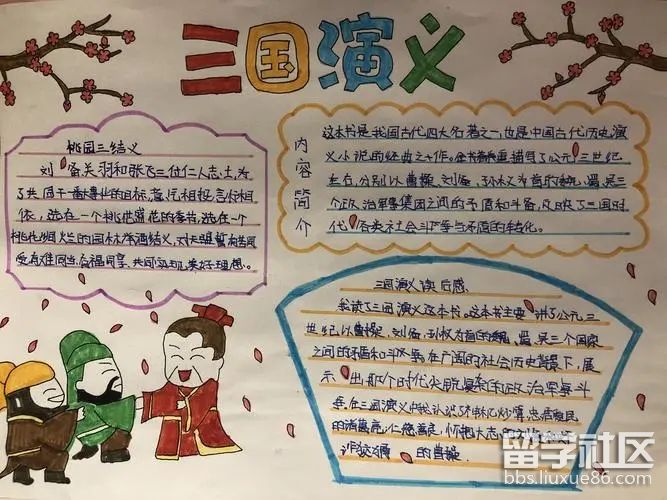 三国演义
桃园三结义
刘备、关羽和张飞三位仁人志士,为
了共同干一番事业的目标,意气相投,言行相
依,选在一个桃花盛开的季节,选在一个
桃花绚烂的园林,举酒结义,对天盟誓,有苦同
受,有难同当,有福同享,共同实现美好理想。
内容简介
这本书是我国古代四大名著之一,也是中国古代历史演
义小说的经典之作。全书描写了公元三世纪
左右,分别以曹操、刘备、孙权为首的魏、蜀、吴三
个政治军事集团之间的矛盾和斗争,反映了三国时
代各类社会斗争与矛盾的转化。
三国演义读后感
我读了三国演义这本书。这本书主要讲了公元三
世纪以曹操、刘备、孙权为首的魏、蜀、吴三个国家
之间的矛盾和斗争,在广阔的社会历史背景下,展
示出那个时代尖锐复杂的政治军事斗
争。在三国演义中我认识了神机妙算忠君爱民
的诸葛亮、仁慈善良、怀抱大志的
的曹操。
留学社区
bbs.liuxue86.com